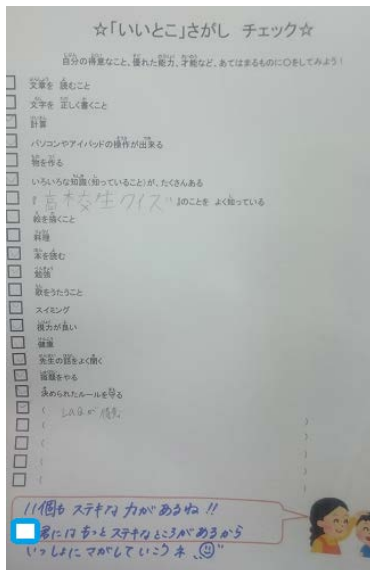 ☆「いいとこ」さがし チェック☆
自分の得意なこと、優れた能力、才能など、あてはまるものに○をしてみよう！
文章を 読むこと
文字を 正しく書くこと
計算
パソコンやアイパッドの操作が出来る
物を作る
いろいろな知識(知っていること)が、たくさんある
『高校生クイズ』のことを よく知っている
絵を描くこと
料理
本を読む
勉強
歌をうたうこと
スイミング
視力が良い
健康
先生の話をよく聞く
宿題をやる
決められたルールを守る
( LaQの )
( )
( )
( )
11個も ステキな力があるね!!
君にはもっとステキなところがあるから
いっしょにさがしていこうネ